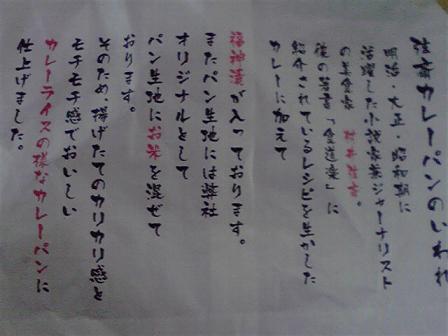 弦斎カレーパンのいわれ
明治・大正・昭和期に
活躍した小説家兼ジャーナリスト
の美食家 村井弦斎。
彼の著書「食道楽」に
紹介されているレシピを生かした
カレーに加えて
福神漬が入っております。
またパン生地には弊社
オリジナルとして
パン生地にお米を混ぜて
おります。
そのため揚げたてのカリカリ感と
モチモチ感でおいしい
カレーライスの様なカレーパンに
仕上げました。